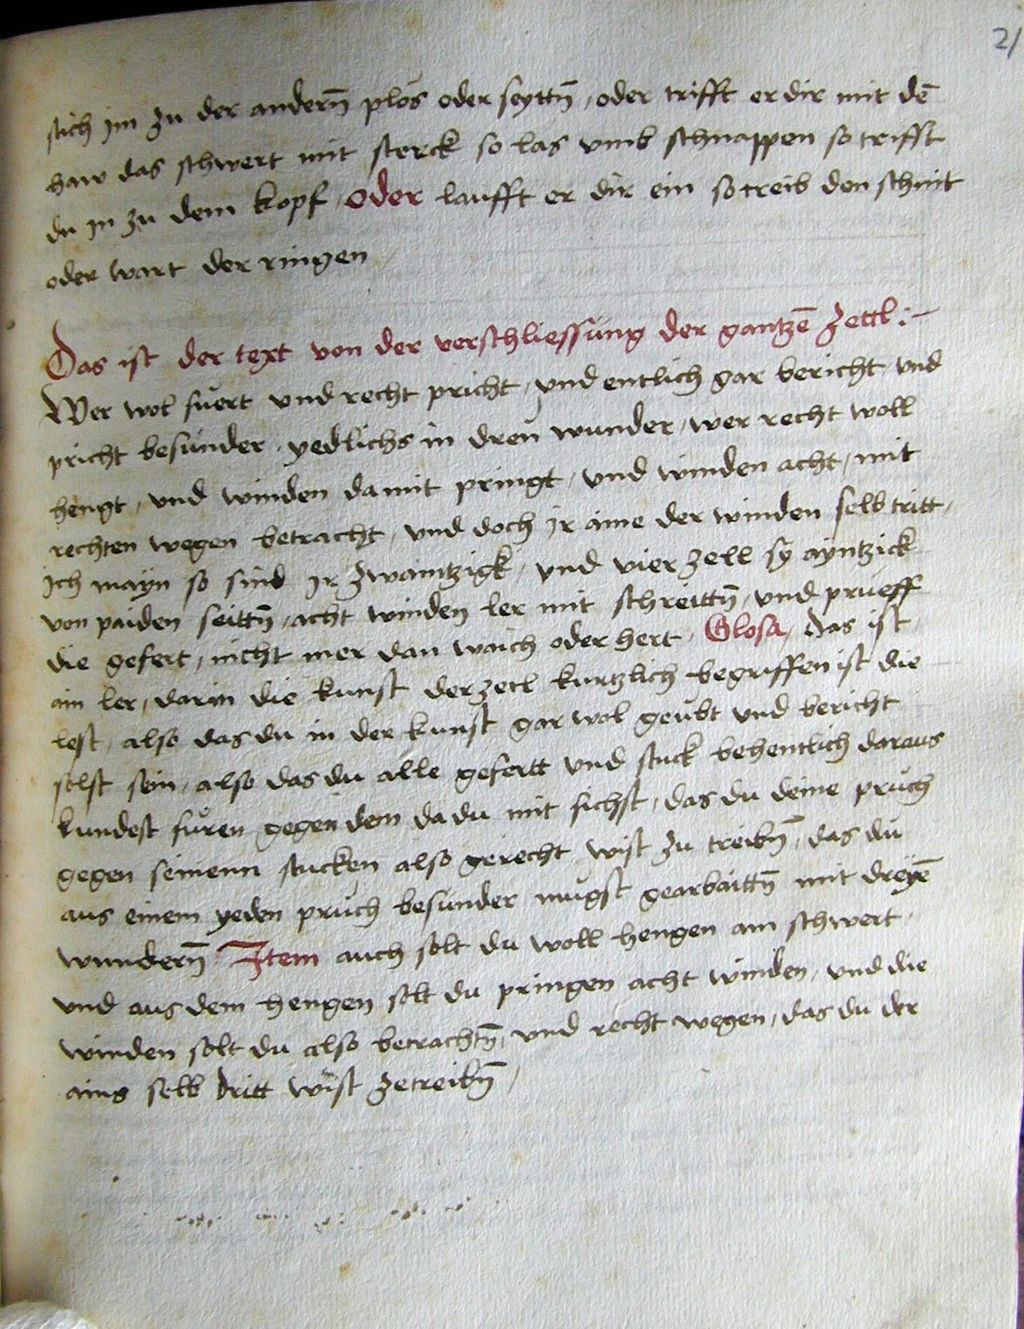 21
stich im zu der anderñ plos oder seyttñ / oder trifft er dir mit dē
haw das schwert mit sterck so las vmb schnappen so trifft
du in zu dem kopf / oder laufft er dir ein so treib den schnit
oder wart der ringen /
Das ist der text von der verschliessung der gantzē zettl :~
Wer wol fuert vnd recht pricht / vnd entlich gar bericht / vnd
pricht besunder / yedlichs in dreu wunder / wer recht woll
hengt / vnd winden damit pringt / vnd winden acht / mit
rechten wegen betracht / vnd doch ir aine der winden selb tritt /
ich mayn so sind ir zwaintzigk / vnd vier zell sy ayntzick
von paiden seittñ / acht winden ler mit schreittñ / vnd prueff
die gefert / nicht mer dan waich oder hert / Glosa / das ist /
ain ler / darin die kunst der zetl kurtzlich begriffen ist die
lest / also das du in der kunst gar wol geubt vnd bericht
solst sein / also das du alle gefertt vnd stuck behentlich daraus
kundest furen gegen dem da du mit fichst / das du deine pruch
gegen seinenn stucken also gerecht wist zu treibñ / das du
aus einem yeden pruch besunder mugst gearbaittñ mit dreyē
wunderñ / Item auch solt du woll hengen am schwert /
vnd aus dem hengen solt du pringen acht winden / vnd die
winden solt du also betrachtñ / vnd recht wegen / das du der
ains selb dritt wist zetreibñ /